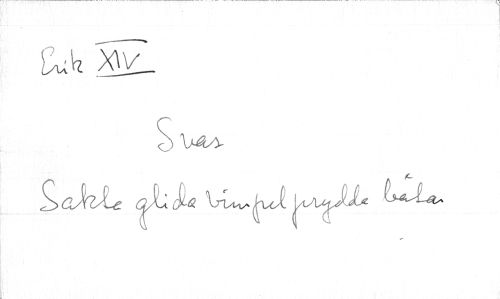 Erik XIV
Svas
Sakta glida vimpelprydda båtar